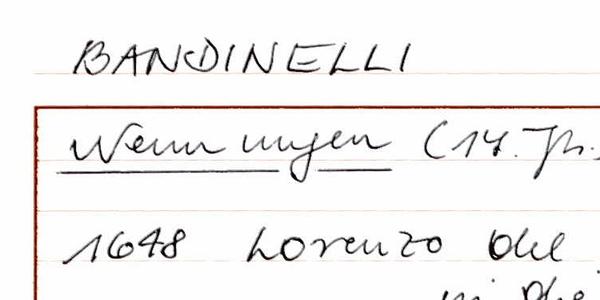 BANDINELLI
Nennungen (14. Jh.
1648 Lorenzo del